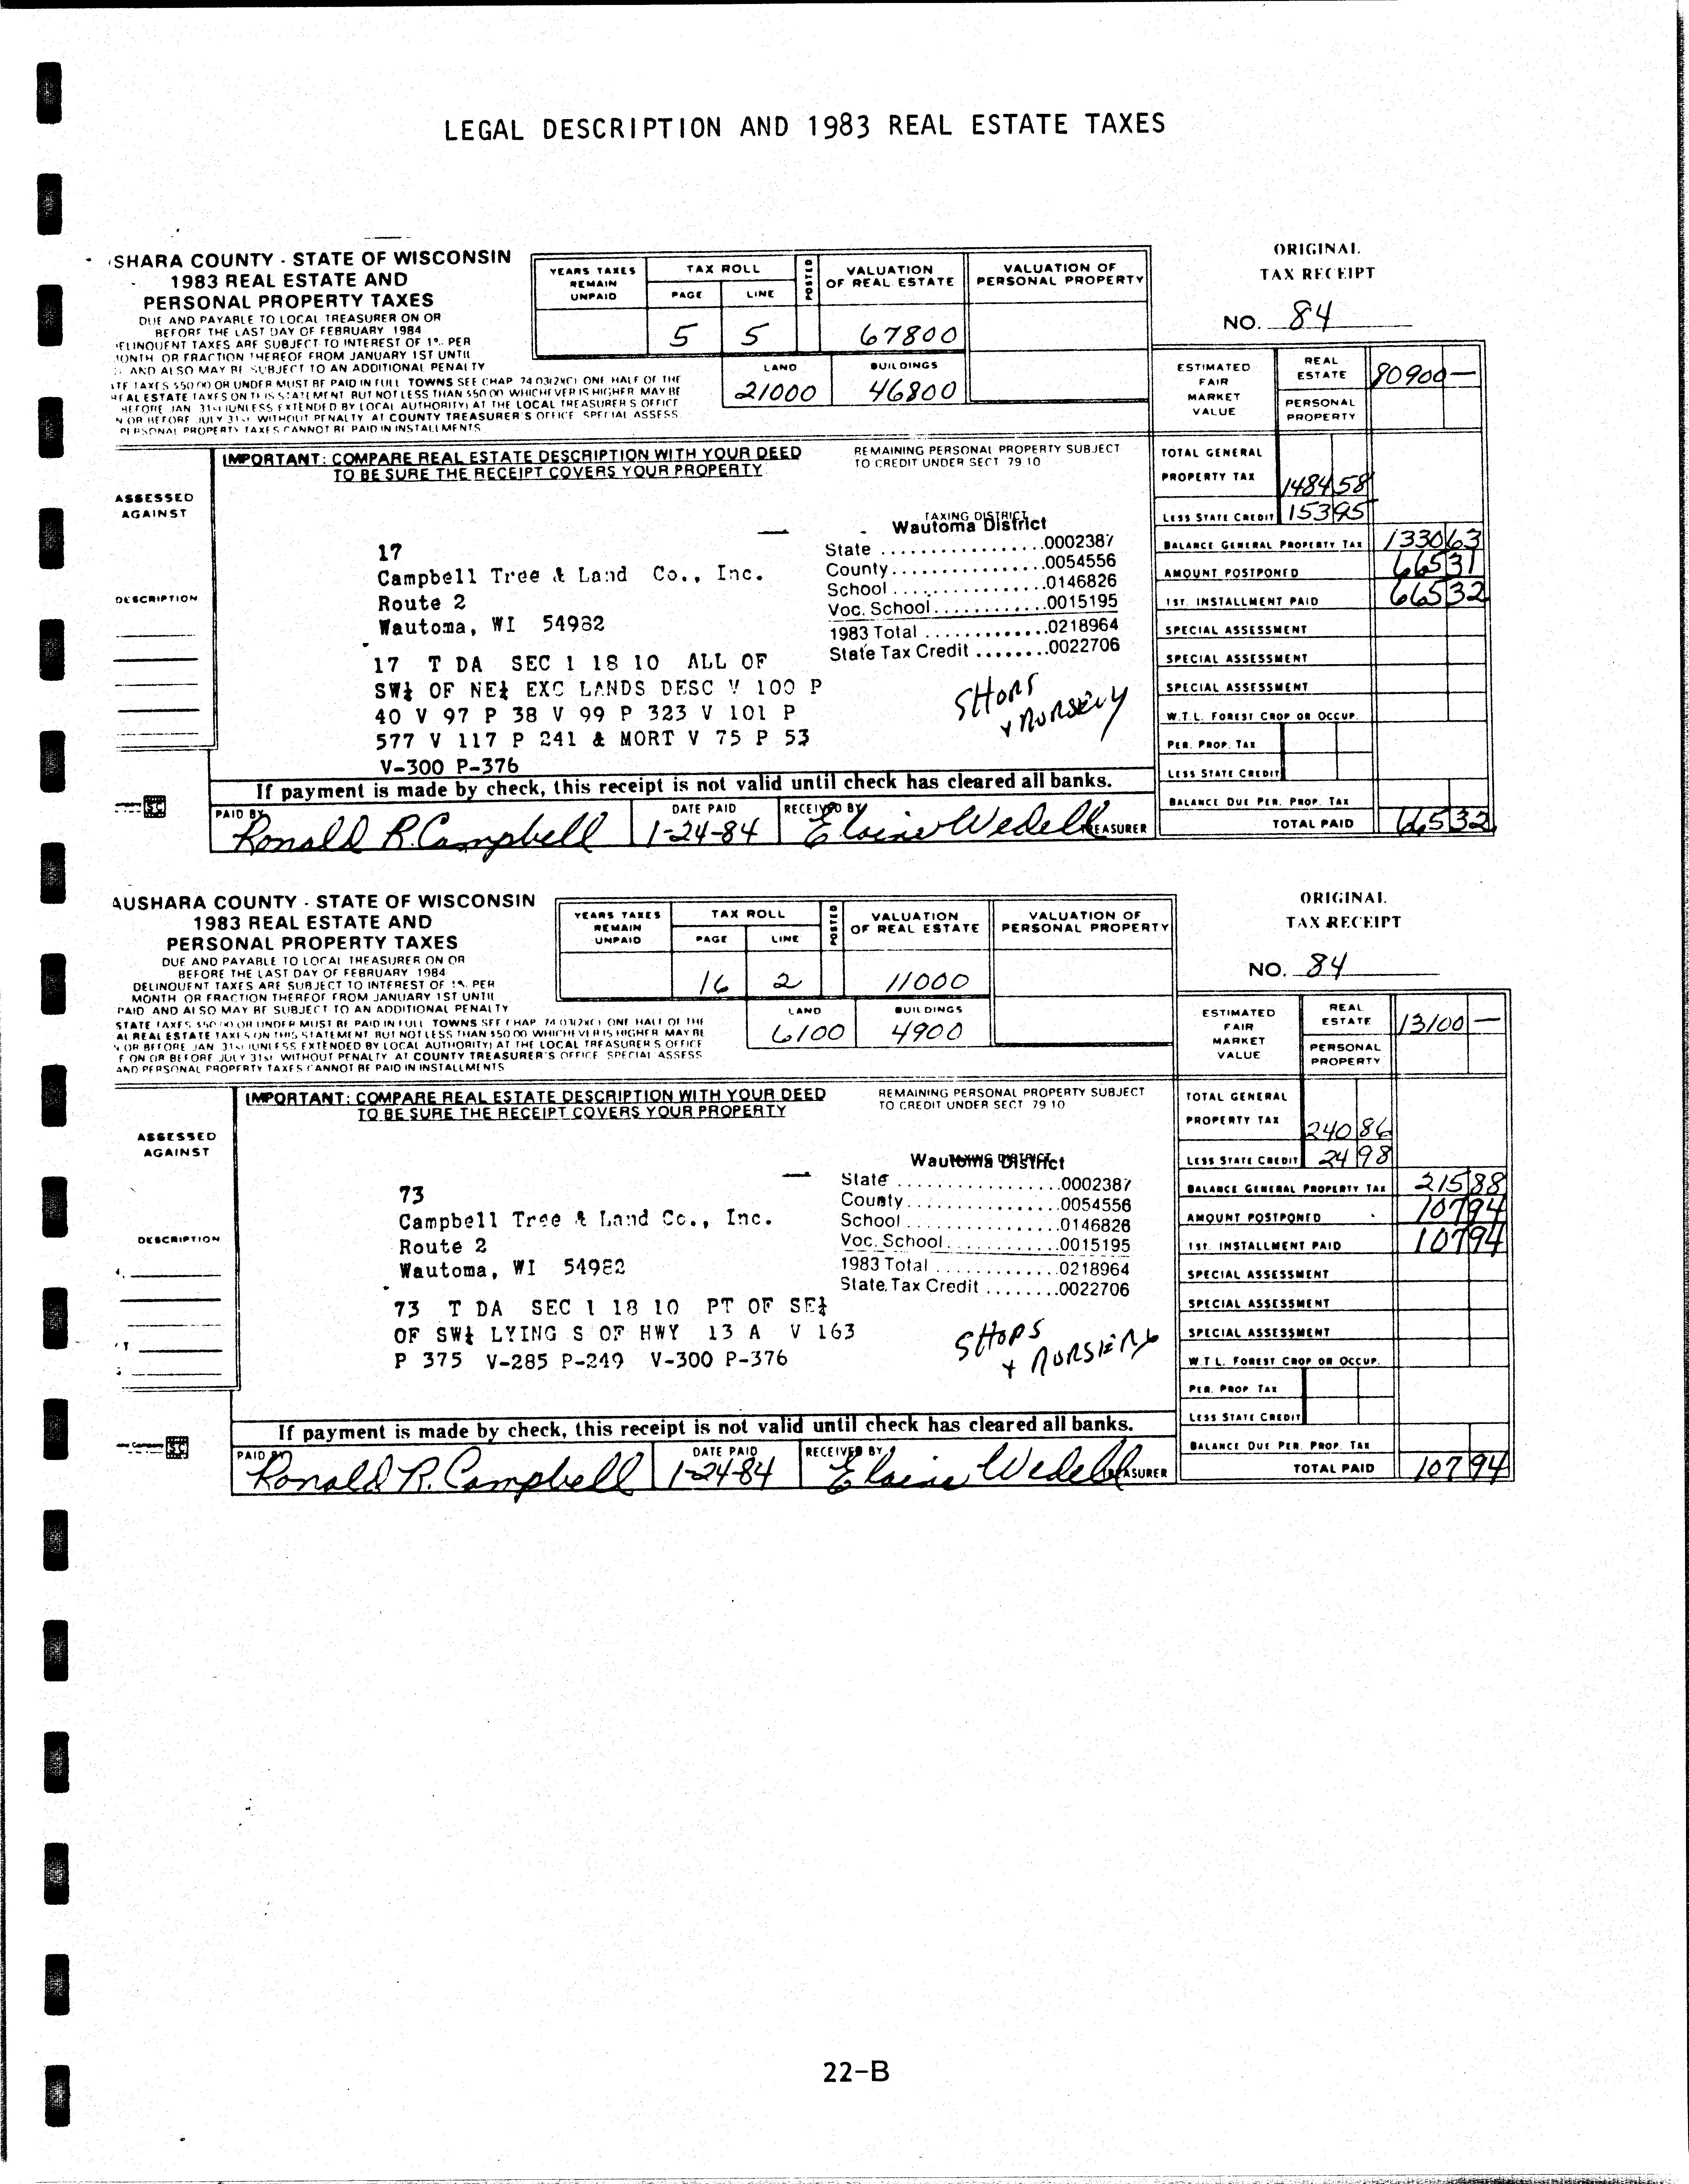 LEGAL DESCRIPTION AND 1983 REAL ESTATE TAXES
SHARA COUNTY - STATE OF WISCONSIN
1983 REAL ESTATE AND
PERSONAL PROPERTY TAXES
DUE AND PAYABLE TO LOCAL TREASURER ON OR
BEFORE THE LAST DAY OF FEBRUARY 1984
ELINQUENT TAXES ARE SUBJECT TO INTEREST OF 1% PER
MONTH OR FRACTION THEREOF FROM JANUARY 1ST UNTIL
AND ALSO MAY BE SUBJECT TO AN ADDITIONAL PENALTY
TAXES $50.00 OR UNDER MUST BE PAID IN FULL TOWNS SEE CHAP 74.03(2)(C) ONE HALF OF THE
REAL ESTATE TAXES ON THIS STATEMENT BUT NOT LESS THAN $50.00 WHICHEVER IS HIGHER MAY BE
BEFORE JAN 31st (UNLESS EXTENDED BY LOCAL AUTHORITY) AT THE LOCAL TREASURER'S OFFICE
N OR BEFORE JULY 31st WITHOUT PENALTY AT COUNTY TREASURER'S OFFICE SPECIAL ASSESS
PERSONAL PROPERTY TAXES CANNOT BE PAID IN INSTALLMENTS
YEARS TAXES REMAIN UNPAID
TAX ROLL
PAGE LINE
POSTED
VALUATION OF REAL ESTATE
VALUATION OF PERSONAL PROPERTY
5 5 67800
LAND BUILDINGS
21000 46800
ORIGINAL
TAX RECEIPT
NO. 84
ESTIMATED FAIR MARKET VALUE
REAL ESTATE 80900 —
PERSONAL PROPERTY
IMPORTANT: COMPARE REAL ESTATE DESCRIPTION WITH YOUR DEED
TO BE SURE THE RECEIPT COVERS YOUR PROPERTY
REMAINING PERSONAL PROPERTY SUBJECT
TO CREDIT UNDER SECT 79 10
ASSESSED
AGAINST
DESCRIPTION
17
Campbell Tree & Land Co., Inc.
Route 2
Wautoma, WI 54982
17 T DA SEC 1 18 10 ALL OF
SW¼ OF NE¼ EXC LANDS DESC V 100 P
40 V 97 P 38 V 99 P 323 V 101 P
577 V 117 P 241 & MORT V 75 P 53
V-300 P-376
TAXING DISTRICT
Wautoma District
State .................0002387
County................0054556
School .................0146826
Voc. School............0015195
1983 Total .............0218964
State Tax Credit ........0022706
SHOPS
+ NURSERY
TOTAL GENERAL
PROPERTY TAX 1484 58
LESS STATE CREDIT 153 95
BALANCE GENERAL PROPERTY TAX 1330 63
AMOUNT POSTPONED 665 31
1ST. INSTALLMENT PAID 665 32
SPECIAL ASSESSMENT
SPECIAL ASSESSMENT
SPECIAL ASSESSMENT
W.T.L. FOREST CROP OR OCCUP.
PER. PROP. TAX
LESS STATE CREDIT
BALANCE DUE PER. PROP. TAX
TOTAL PAID 665 32
If payment is made by check, this receipt is not valid until check has cleared all banks.
PAID BY Ronald R. Campbell
DATE PAID 1-24-84
RECEIVED BY Elaine Wedell
TREASURER
AUSHARA COUNTY - STATE OF WISCONSIN
1983 REAL ESTATE AND
PERSONAL PROPERTY TAXES
DUE AND PAYABLE TO LOCAL TREASURER ON OR
BEFORE THE LAST DAY OF FEBRUARY 1984
DELINQUENT TAXES ARE SUBJECT TO INTEREST OF 1% PER
MONTH OR FRACTION THEREOF FROM JANUARY 1ST UNTIL
PAID AND ALSO MAY BE SUBJECT TO AN ADDITIONAL PENALTY
STATE TAXES $50.00 OR UNDER MUST BE PAID IN FULL TOWNS SEE CHAP 74.03(2)(C) ONE HALF OF THE
AL REAL ESTATE TAXES ON THIS STATEMENT BUT NOT LESS THAN $50.00 WHICHEVER IS HIGHER MAY BE
N OR BEFORE JAN 31st (UNLESS EXTENDED BY LOCAL AUTHORITY) AT THE LOCAL TREASURER'S OFFICE
F ON OR BEFORE JULY 31st WITHOUT PENALTY AT COUNTY TREASURER'S OFFICE SPECIAL ASSESS
AND PERSONAL PROPERTY TAXES CANNOT BE PAID IN INSTALLMENTS
YEARS TAXES REMAIN UNPAID
TAX ROLL
PAGE LINE
POSTED
VALUATION OF REAL ESTATE
VALUATION OF PERSONAL PROPERTY
16 2 11000
LAND BUILDINGS
6100 4900
ORIGINAL
TAX RECEIPT
NO. 84
ESTIMATED FAIR MARKET VALUE
REAL ESTATE 13100 —
PERSONAL PROPERTY
IMPORTANT: COMPARE REAL ESTATE DESCRIPTION WITH YOUR DEED
TO BE SURE THE RECEIPT COVERS YOUR PROPERTY
REMAINING PERSONAL PROPERTY SUBJECT
TO CREDIT UNDER SECT 79 10
ASSESSED
AGAINST
DESCRIPTION
73
Campbell Tree & Land Co., Inc.
Route 2
Wautoma, WI 54982
73 T DA SEC 1 18 10 PT OF SE¼
OF SW¼ LYING S OF HWY 13 A V 163
P 375 V-285 P-249 V-300 P-376
Wautoma District
State .................0002387
County................0054556
School .................0146826
Voc. School............0015195
1983 Total .............0218964
State Tax Credit ........0022706
SHOPS
+ NURSIERY
TOTAL GENERAL
PROPERTY TAX 240 86
LESS STATE CREDIT 24 98
BALANCE GENERAL PROPERTY TAX 215 88
AMOUNT POSTPONED 107 94
1ST. INSTALLMENT PAID 107 94
SPECIAL ASSESSMENT
SPECIAL ASSESSMENT
SPECIAL ASSESSMENT
W.T.L. FOREST CROP OR OCCUP.
PER. PROP TAX
LESS STATE CREDIT
BALANCE DUE PER. PROP. TAX
TOTAL PAID 107 94
If payment is made by check, this receipt is not valid until check has cleared all banks.
PAID BY Ronald R. Campbell
DATE PAID 1-24-84
RECEIVED BY Elaine Wedell
TREASURER
22-B